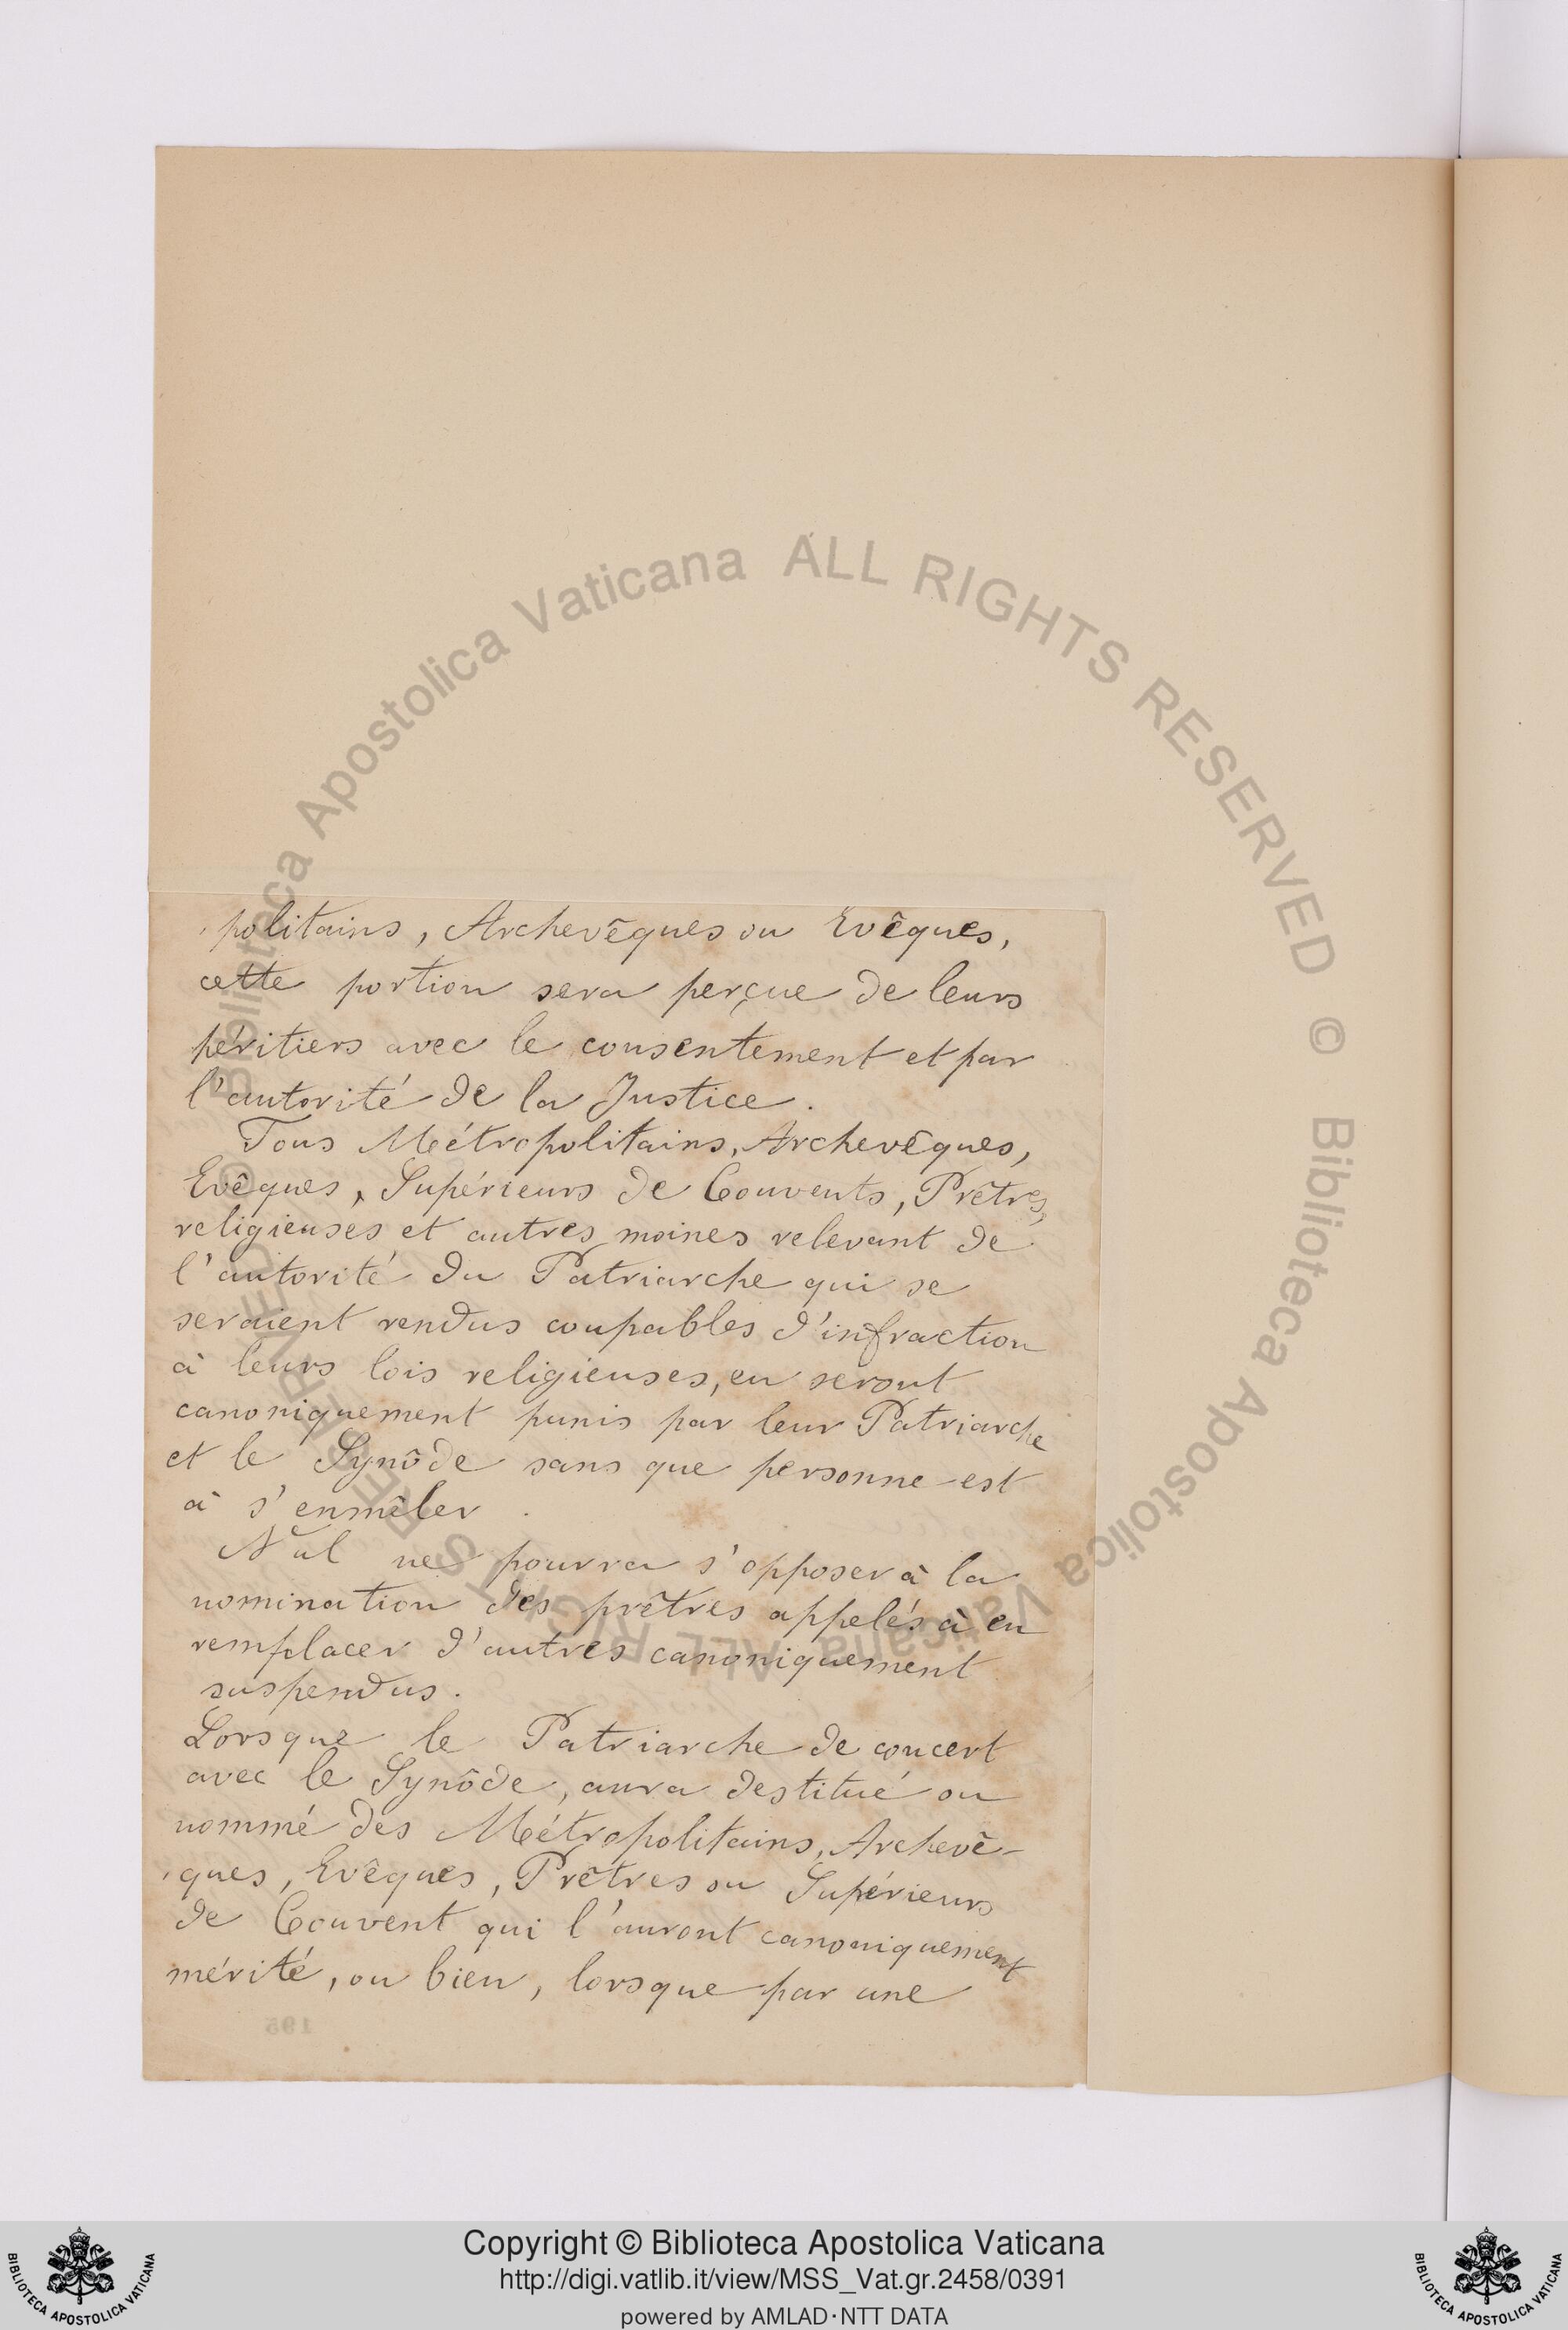 politains, Archevêques ou Evêques,
cette portion sera perçue de leurs
héritiers avec le consentement et par
l'autorité de la Justice.
Tous Métropolitains, Archevêques,
Evêques, Supérieurs de Couvents, Prêtres,
religieuses et autres moines relevant de
l'autorité du Patriarche qui se
seraient rendus coupables d'infraction
à leurs lois religieuses, en seront
canoniquement punis par leur Patriarche
et le Synôde sans que personne est
à s'enmêler.
Nul ne pourra s'opposer à la
nomination des prêtres appelés à en
remplacer d'autres canoniquement
suspendus.
Lorsque le Patriarche de concert
avec le Synôde, aura destitué ou
nommé des Métropolitains, Archevê-
ques, Evêques, Prêtres ou Supérieurs
de Couvent qui l'auront canoniquement
mérité, ou bien, lorsque par une
195
© Biblioteca Apostolica Vaticana ALL RIGHTS RESERVED © Biblioteca Apostolica Vaticana ALL RIGHTS RESERVED
Copyright © Biblioteca Apostolica Vaticana
http://digi.vatlib.it/view/MSS_Vat.gr.2458/0391
powered by AMLAD·NTT DATA
BIBLIOTECA APOSTOLICA VATICANA
BIBLIOTECA APOSTOLICA VATICANA